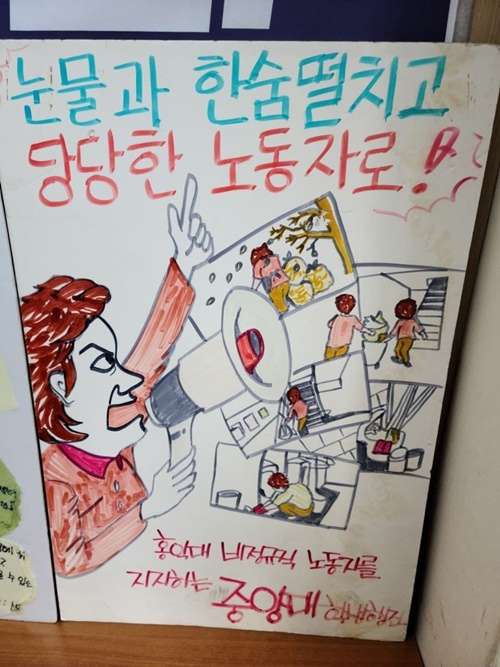 눈물과 한숨떨치고
당당한 노동자로!
홍익대 비정규직 노동자를
지지하는 중앙대